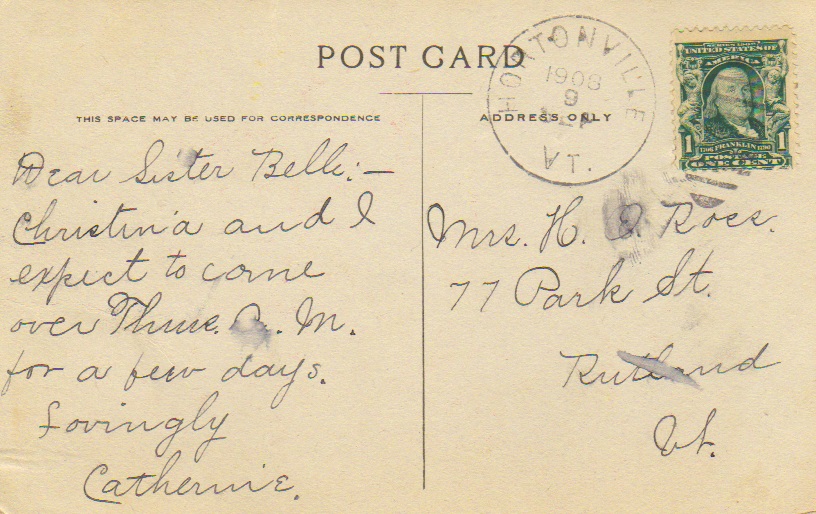 POST CARD
THIS SPACE MAY BE USED FOR CORRESPONDENCE
ADDRESS ONLY
HORTONVILLE
1908
9
VT.
SERIES 1902
UNITED STATES OF
AMERICA
1 1706 FRANKLIN 1790 1
POSTAGE
ONE CENT
Dear Sister Belle:—
Christina and I
expect to come
over Thur. A. M.
for a few days.
Lovingly
Catherine.
Mrs. H. J. Ross.
77 Park St.
Rutland
Vt.